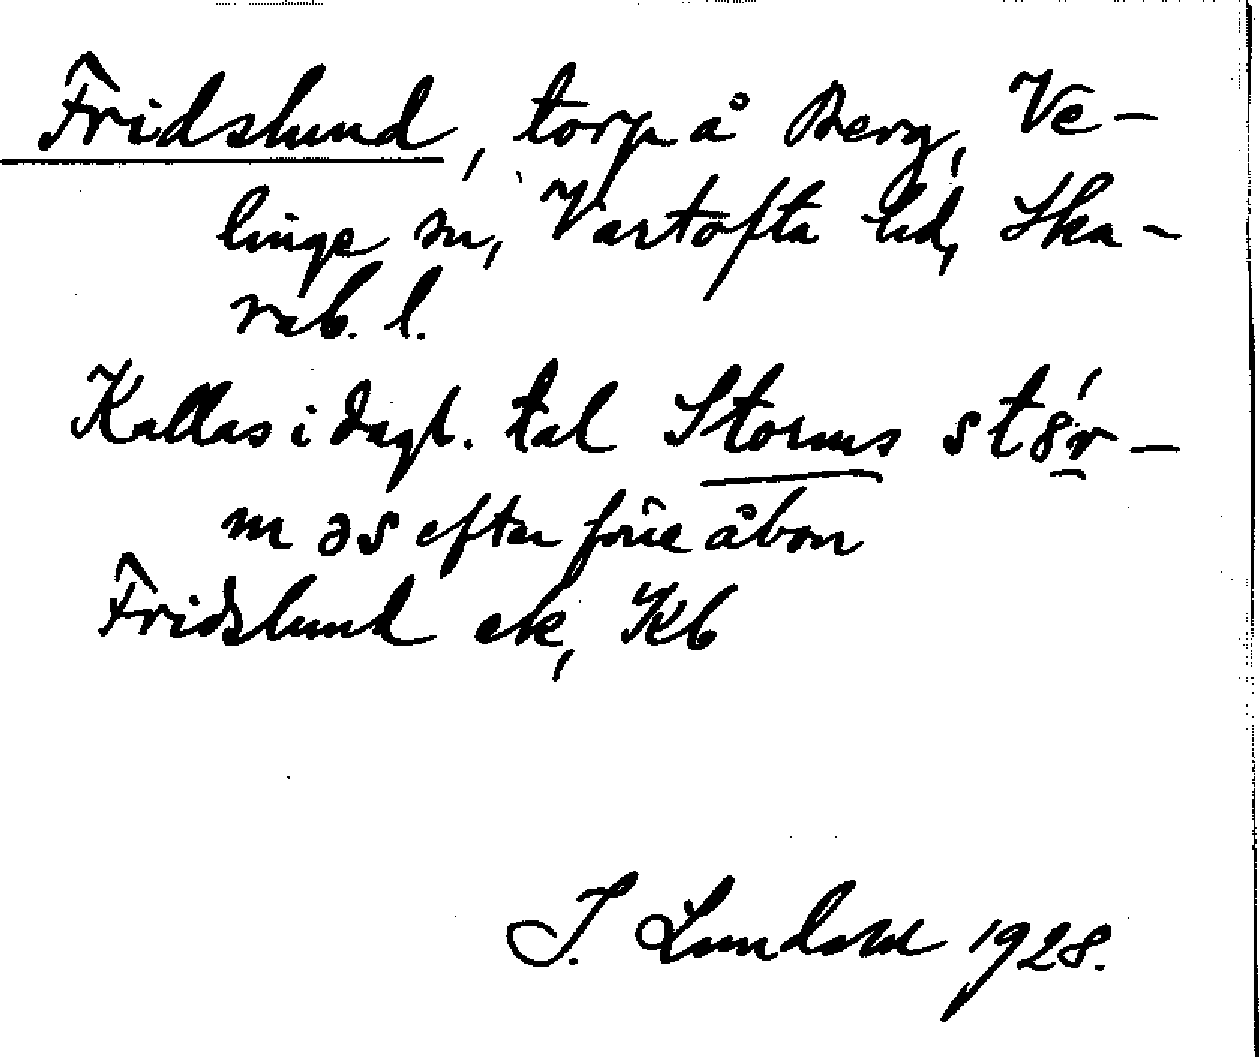 Fridslund, torp å Berg, Ve-
linge sn, Vartofta hd, Ska-
rab. l.
Kallas i dagl. tal Storms st8́r-
m əs efter förre åbon
Fridslund ek, Kb
I. Lundahl 1928.